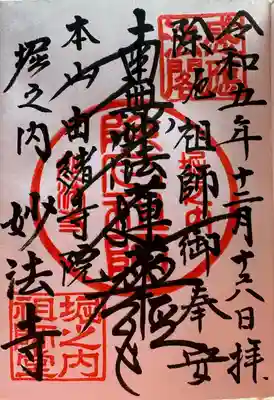 令和五年十二月十六日拝
除厄祖師御奉安
南無妙法蓮華経
本山由緒寺院
堀之内妙法寺
堀之内
祖師堂